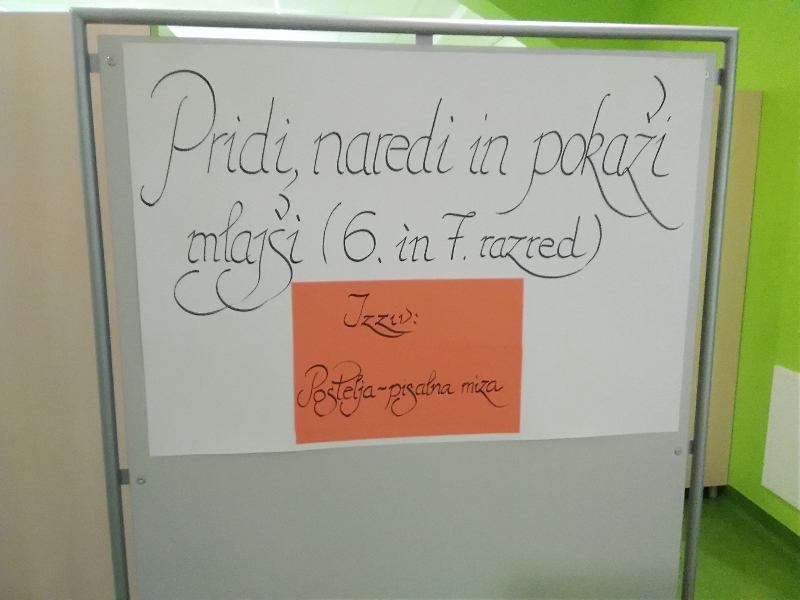 Pridi, naredi in pokaži
mlajši (6. in 7. razred)
Izziv:
Postelja-pisalna miza